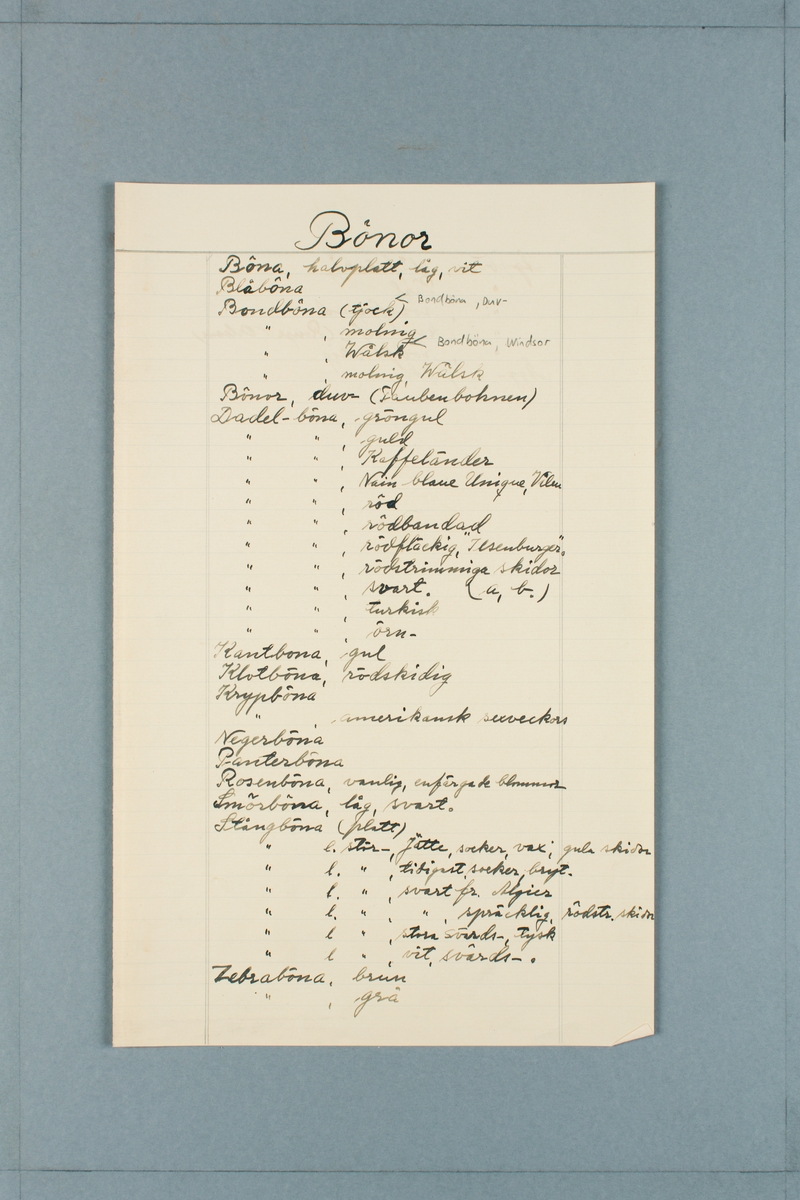 Bönor
Böna, halvplatt, låg, vit
Blåböna
Bondböna (tjock) < Bondböna, Duv-
" , molnig
" , Wälsk < Bondböna, Windsor
" , molnig, Wälsk
Bönor, duv- (Taubenbohnen)
Dadel-böna, gröngul
" " , guld
" " , Kaffeländer
" " , Nain blanc Unique, Vilm
" " , röd
" " , rödbandad
" " , rödfläckig, "Ilsenburger".
" " , rödstrimmiga skidor
" " , svart. (a, b.)
" " , turkisk
" " , örn-
Kantböna, gul
Klotböna, rödskidig
Krypböna
" , amerikansk sexveckors
Negerböna
Panterböna
Rosenböna, vanlig, enfärgade blommor
Smörböna, låg, svart.
Stångböna (platt)
" l. stör-, Jätte, socker, vax, gula skidor
" l. " , tidigast, socker, bryt-
" l. " , svart fr. Algier
" l. " , " , spräcklig, rödstr. skidor
" l " , stora svärds-, tysk
" l " , vit, svärds-.
Zebraböna, brun
" , grå